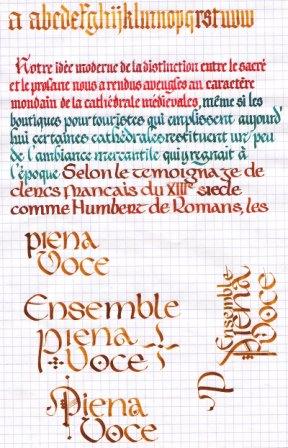 a abcdefghijklmnopqrstuvw
Notre idée moderne de la distinction entre le sacré
et le profane nous a rendus aveugles au caractère
mondain de la cathédrale médiévales, même si les
boutiques pour touristes qui emplissent aujourd'
hui certaines cathédrales restituent un peu
de l'ambiance mercantile qui y regnait à
l'époque Selon le temoignage de
clercs francais du XIIIe siecle
comme Humbert de Romans, les
piena
voce
Ensemble
Piena
Voce
Piena
Voce
Ensemble
Piena
Voce
P